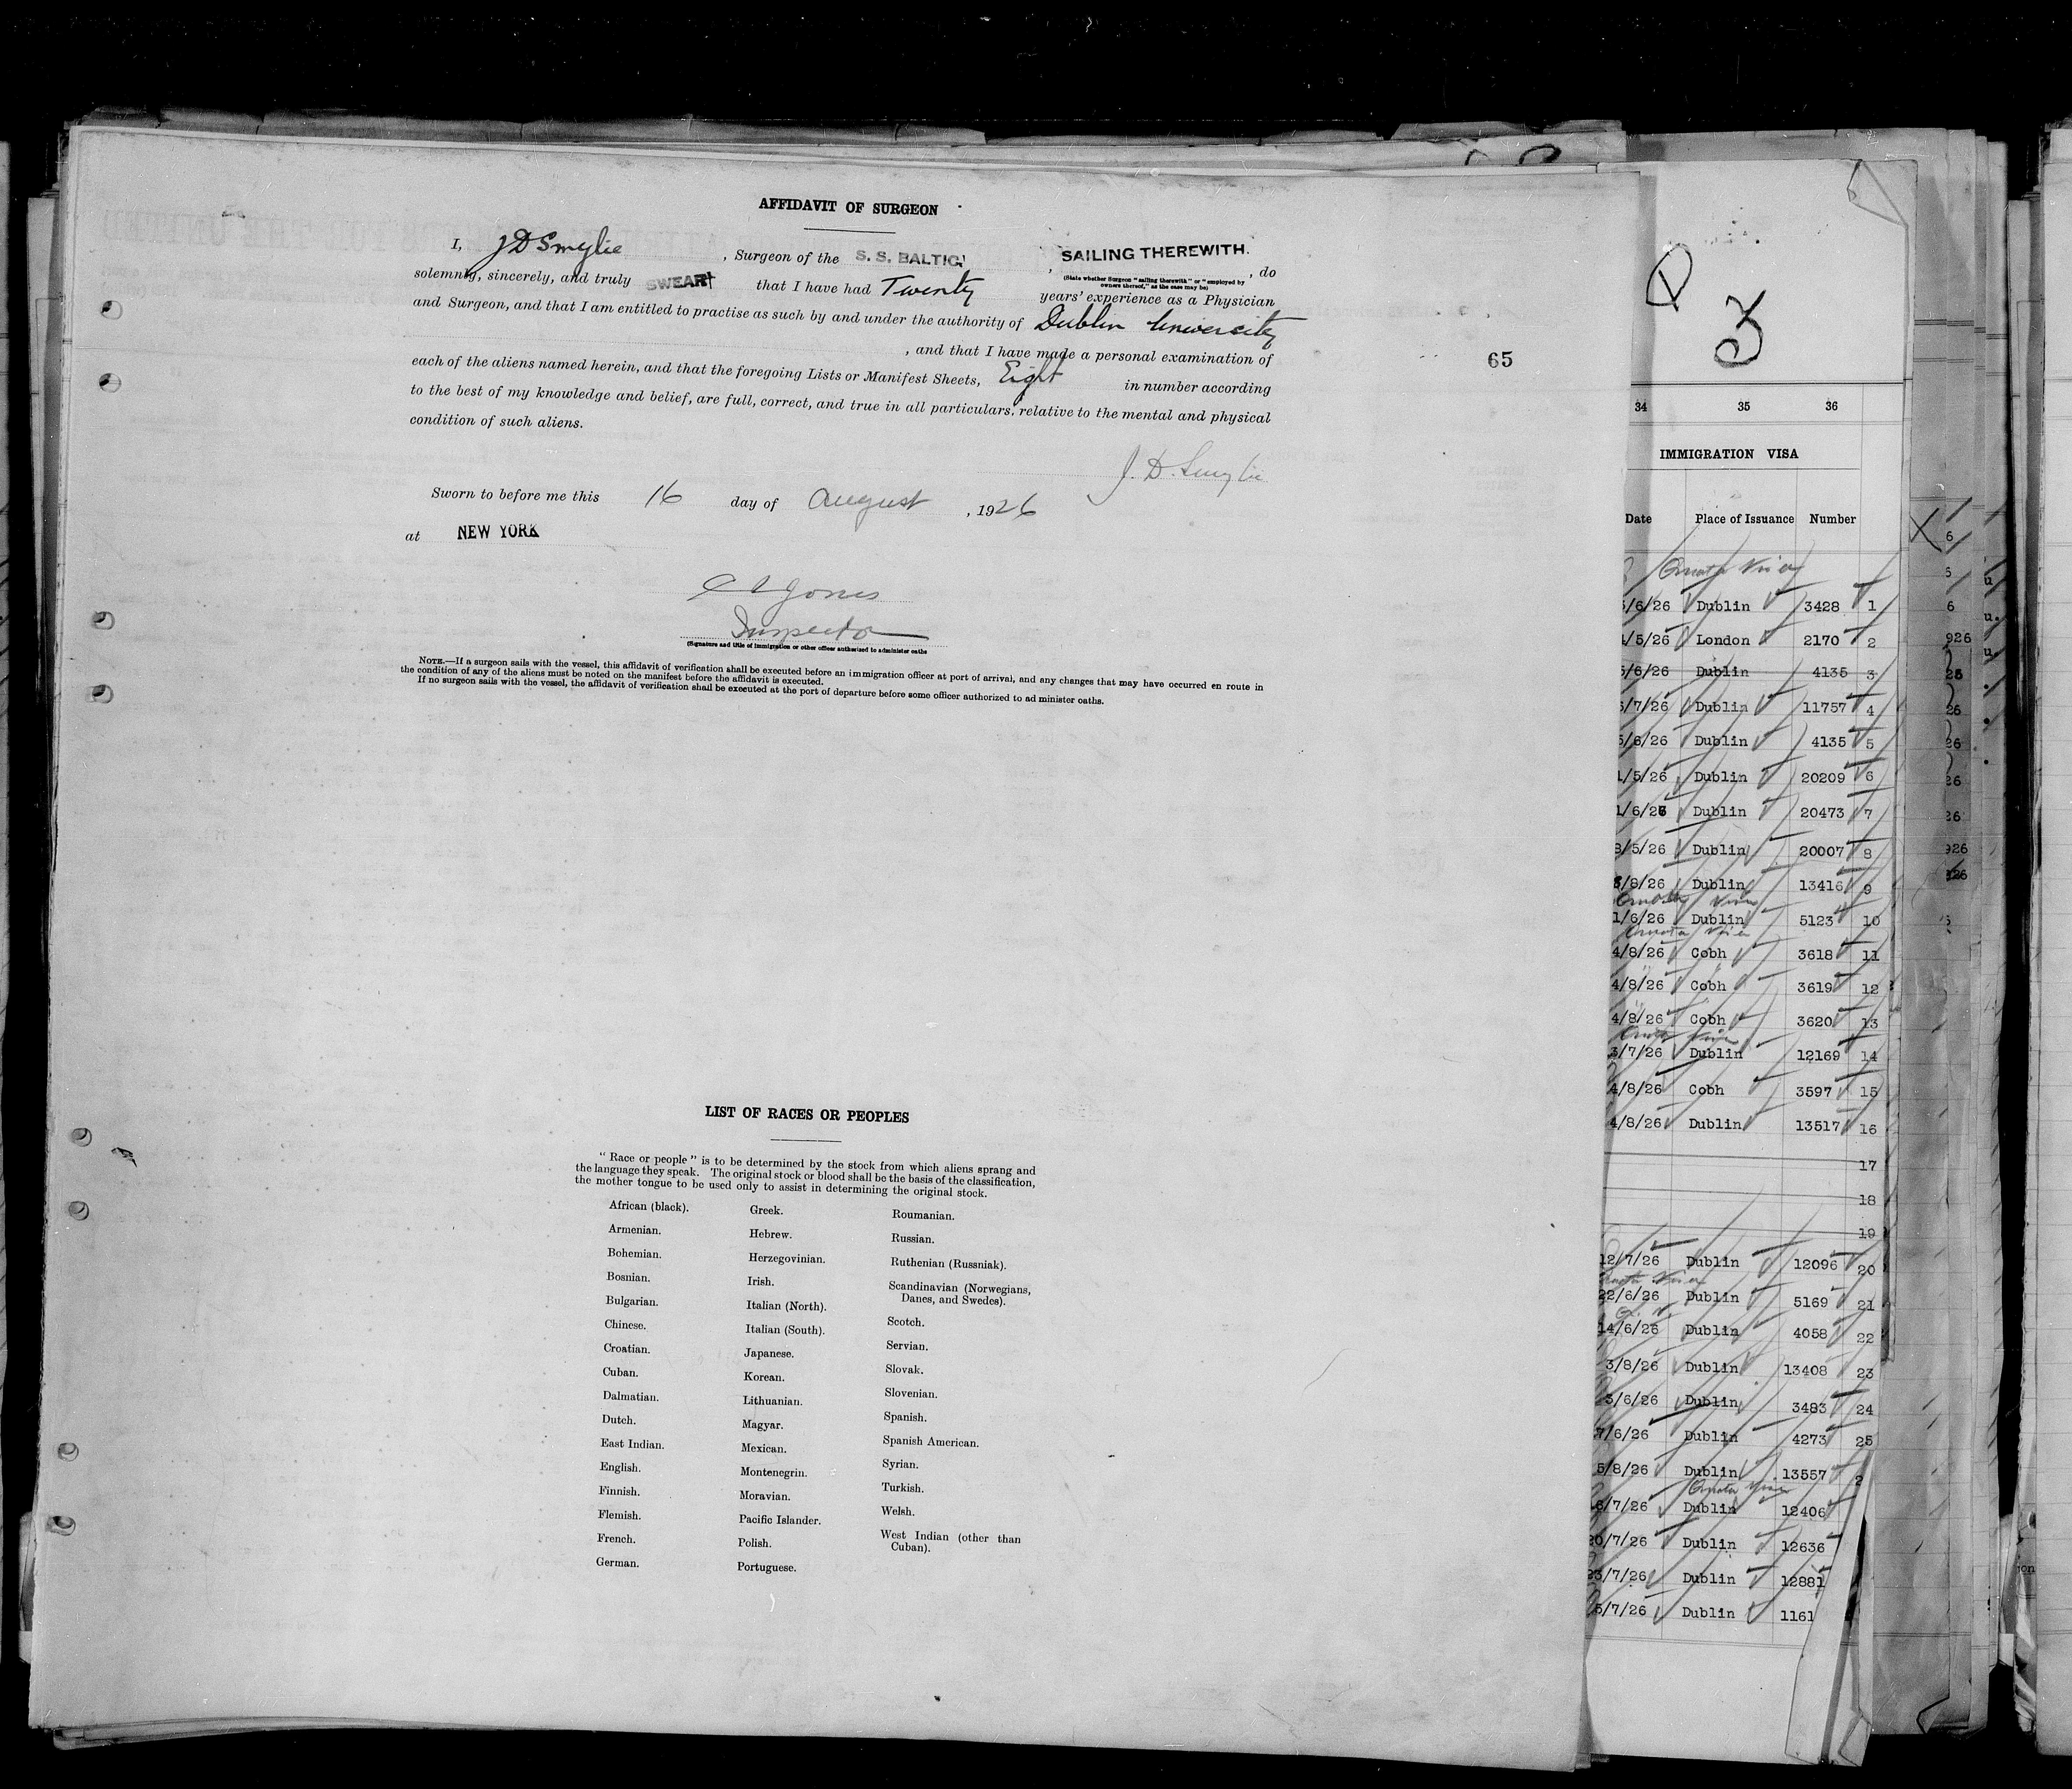 AFFIDAVIT OF SURGEON
I, J D Smylie, Surgeon of the S. S. BALTIC, SAILING THEREWITH. , do
(State whether Surgeon "sailing therewith" or "employed by owners thereof," as the case may be)
solemnly, sincerely, and truly SWEAR that I have had Twenty years' experience as a Physician
and Surgeon, and that I am entitled to practise as such by and under the authority of Dublin University
, and that I have made a personal examination of
each of the aliens named herein, and that the foregoing Lists or Manifest Sheets, Eight in number according
to the best of my knowledge and belief, are full, correct, and true in all particulars, relative to the mental and physical
condition of such aliens.
J. D. Smylie
Sworn to before me this 16 day of August , 1926
at NEW YORK
Jones
Inspector
(Signature and title of immigration or other officer authorized to administer oaths
NOTE.—If a surgeon sails with the vessel, this affidavit of verification shall be executed before an immigration officer at port of arrival, and any changes that may have occurred en route in
the condition of any of the aliens must be noted on the manifest before the affidavit is executed.
If no surgeon sails with the vessel, the affidavit of verification shall be executed at the port of departure before some officer authorized to ad minister oaths.
65
LIST OF RACES OR PEOPLES
"Race or people" is to be determined by the stock from which aliens sprang and
the language they speak. The original stock or blood shall be the basis of the classification,
the mother tongue to be used only to assist in determining the original stock.
African (black).
Armenian.
Bohemian.
Bosnian.
Bulgarian.
Chinese.
Croatian.
Cuban.
Dalmatian.
Dutch.
East Indian.
English.
Finnish.
Flemish.
French.
German.
Greek.
Hebrew.
Herzegovinian.
Irish.
Italian (North).
Italian (South).
Japanese.
Korean.
Lithuanian.
Magyar.
Mexican.
Montenegrin.
Moravian.
Pacific Islander.
Polish.
Portuguese.
Roumanian.
Russian.
Ruthenian (Russniak).
Scandinavian (Norwegians,
Danes, and Swedes).
Scotch.
Servian.
Slovak.
Slovenian.
Spanish.
Spanish American.
Syrian.
Turkish.
Welsh.
West Indian (other than
Cuban).
34 35 36
IMMIGRATION VISA
Date Place of Issuance Number
/6/26 Dublin 3428 1
/5/26 London 2170 2
/6/26 Dublin 4135 3
/7/26 Dublin 11757 4
/6/26 Dublin 4135 5
/5/26 Dublin 20209 6
/6/26 Dublin 20473 7
/5/26 Dublin 20007 8
/8/26 Dublin 13416 9
1/6/26 Dublin 5123 10
4/8/26 Cobh 3618 11
4/8/26 Cobh 3619 12
4/8/26 Cobh 3620 13
3/7/26 Dublin 12169 14
4/8/26 Cobh 3597 15
4/8/26 Dublin 13517 16
17
18
19
12/7/26 Dublin 12096 20
22/6/26 Dublin 5169 21
14/6/26 Dublin 4058 22
3/8/26 Dublin 13408 23
3/6/26 Dublin 3483 24
7/6/26 Dublin 4273 25
5/8/26 Dublin 13557 2
6/7/26 Dublin 12406
20/7/26 Dublin 12636
23/7/26 Dublin 12881
5/7/26 Dublin 1161